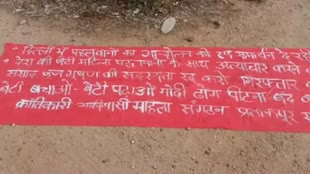 * दिल्ली में पहलवानों का आन्दोलन को हम समर्थन दे रहे
* देश की बेटी महिला पहलवानों के साथ अत्याचार करने
सांसद बृज भूषण की सदस्यता रद्द करो गिरफ्तार
बेटी बचाओ - बेटी पढ़ाओ मोदी ढोंग पीटना बंद
क्रांतिकारी आदिवासी महिला संगठन